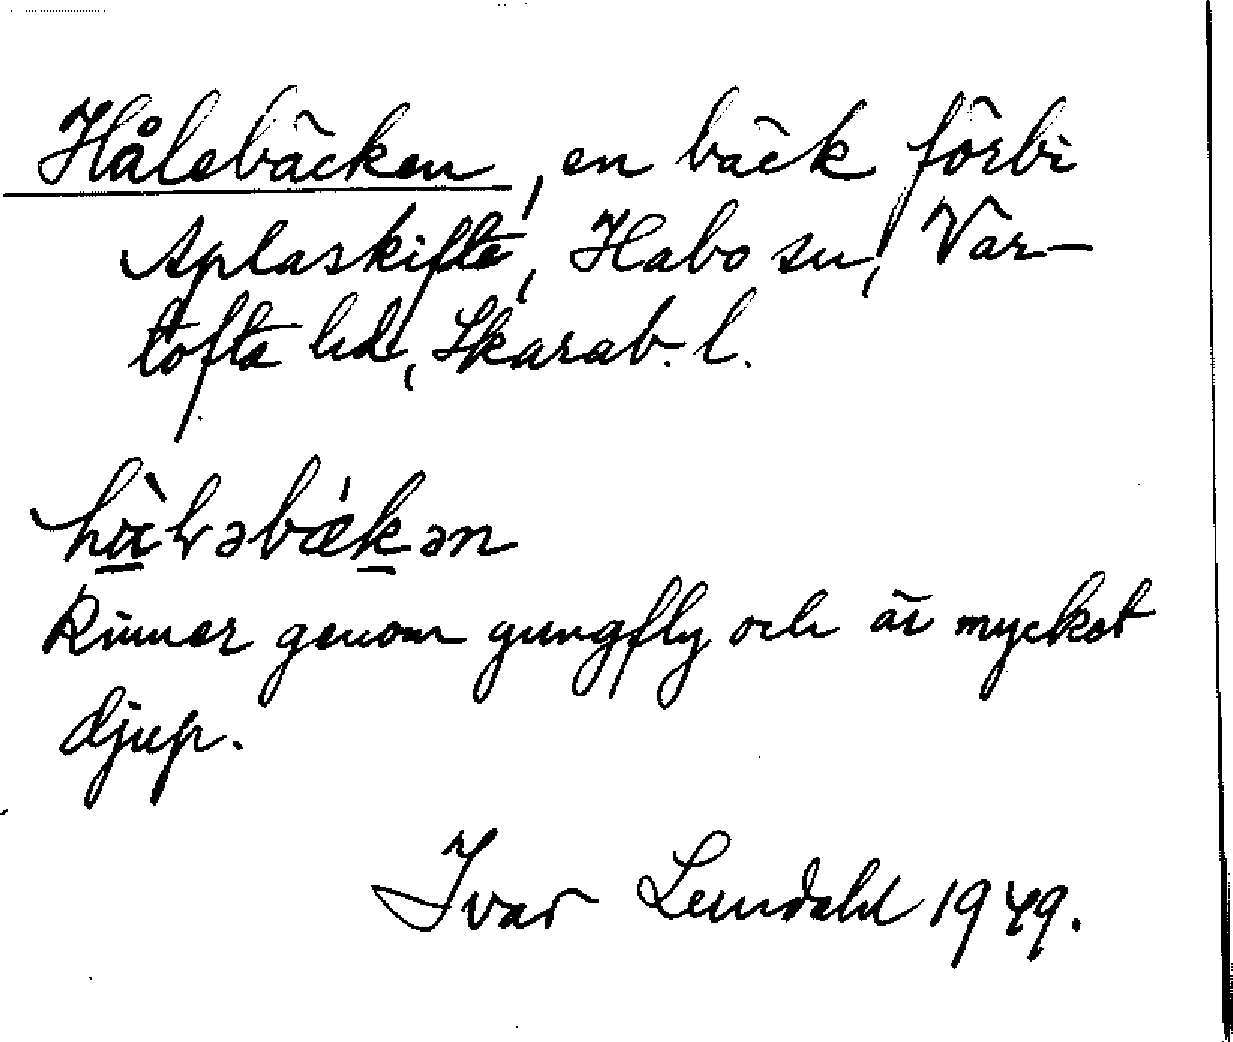 Hålebäcken, en bäck förbi
Aplaskifte, Habo sn, Var-
tofta hd, Skarab. l.
hɑ̀lɘbækən
Rinner genom gungfly och är mycket
djup.
Ivar Lundahl 1949.